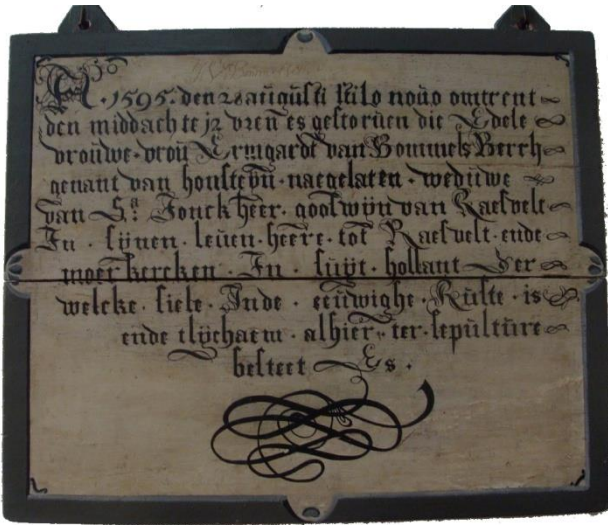 A. 1595. den 28 augusti stilo novo omtrent
den middach te 12 vren es gestorven die Edele
vrouwe. vrou Ermgardt van Bommels Berch
genant van honsteyn. naegelaten. weduwe
van Sa. Jonckheer. gooswyn van Raesvelt.
In. synen. leven. heere. tot Raesvelt. ende
moerkercken. In. suyt. hollant. Der
welcke. siele. Inde. eeuwighe. Ruste. is
ende tlychaem. alhier. ter. sepulture
besteet Es.